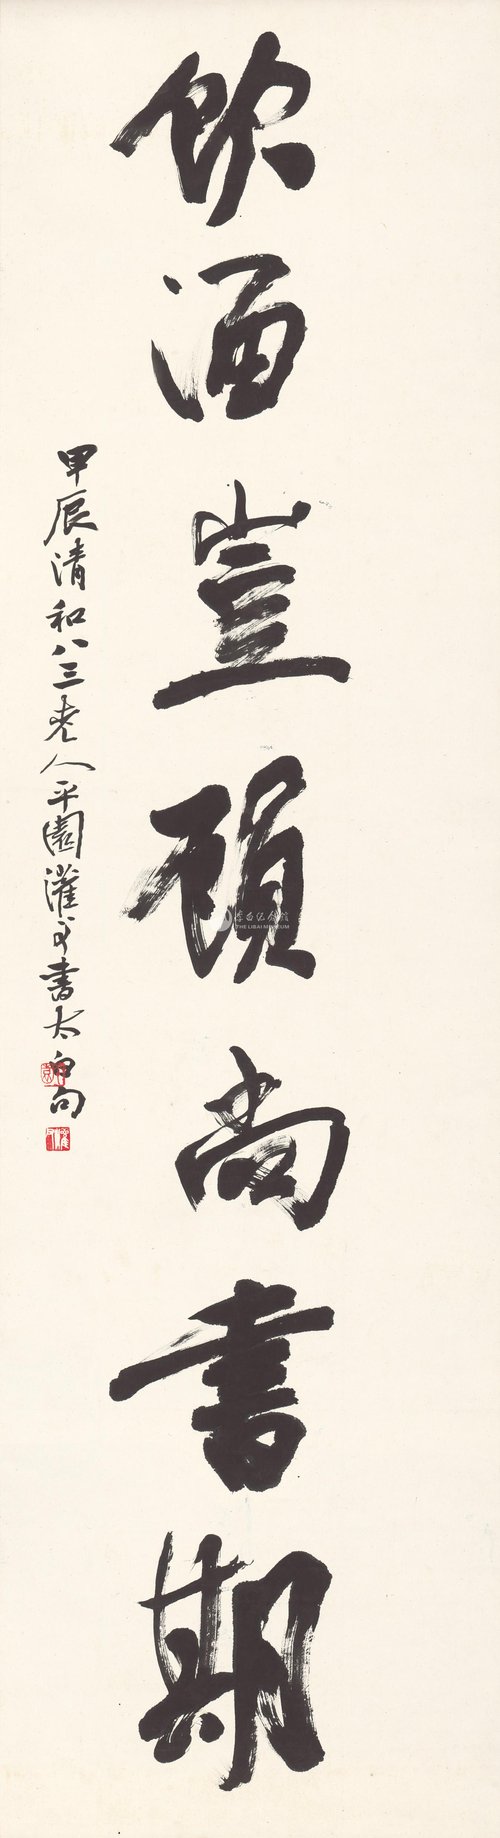 飲酒豈顧尚書期
甲辰清和八三老人平園灌叟書太白句
李白纪念馆
THE LIBAI MUSEUM